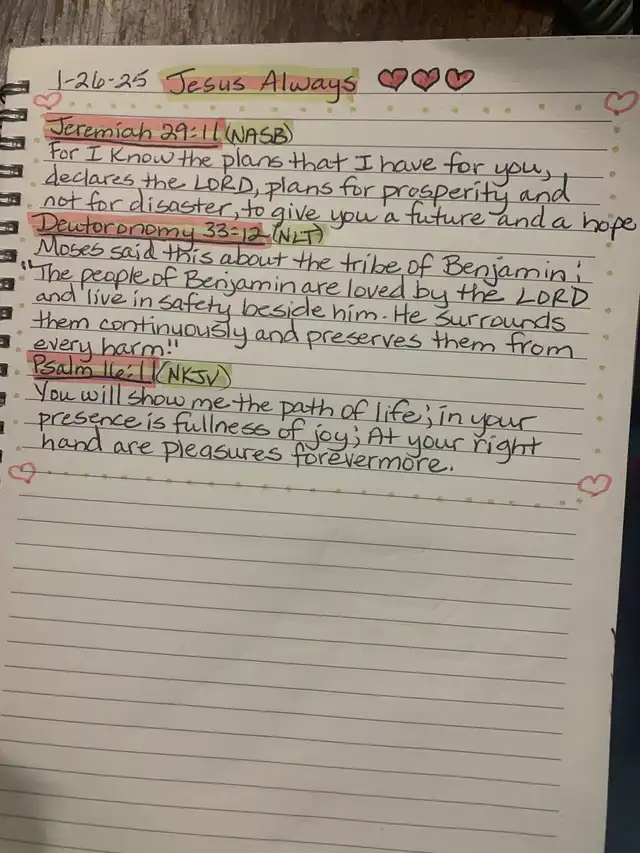 1-26-25 Jesus Always
Jeremiah 29:11 (NASB)
For I Know the plans that I have for you,
declares the LORD, plans for prosperity and
not for disaster, to give you a future and a hope
Deutoronomy 33:12 (NLT)
Moses said this about the tribe of Benjamin:
"The people of Benjamin are loved by the LORD
and live in safety beside him. He surrounds
them continuously and preserves them from
every harm."
Psalm 16:11 (NKJV)
You will show me the path of life; in your
presence is fullness of joy; At your right
hand are pleasures forevermore.